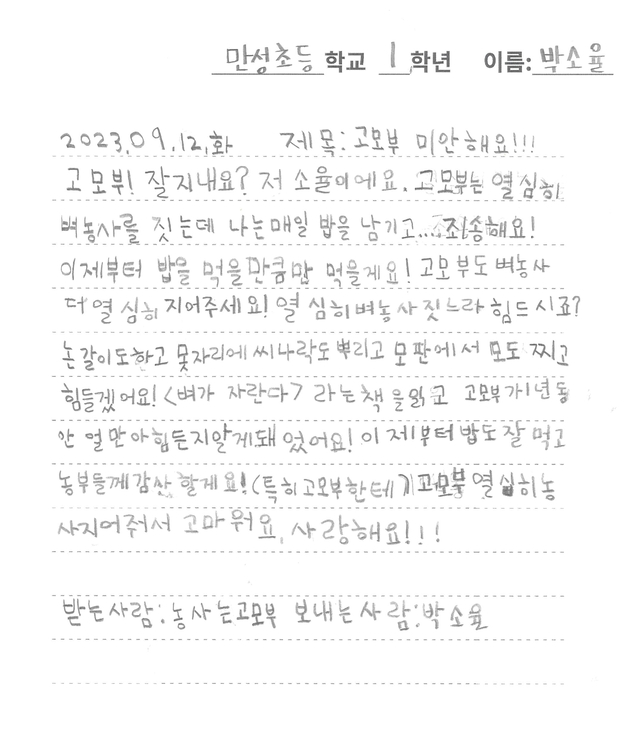 만성초등 학교 1 학년 이름: 박소율
2023.09.12.화 제목: 고모부 미안해요!!!
고모부! 잘지내요? 저 소율이에요. 고모부는 열심히
벼농사를 짓는데 나는매일 밥을 남기고... 죄송해요!
이제부터 밥을 먹을만큼만 먹을게요! 고모부도 벼농사
더열심히 지어주세요! 열심히벼농사짓느라 힘드시죠?
논갈이도하고 못자리에씨나락도뿌리고 모판에서 모도 찌고
힘들겠어요! <벼가 자란다> 라는책을읽고 고모부가1년동
안 얼만아힘든지알게돼었어요! 이제부터밥도잘먹고
농부들께감산할게요! (특히고모부한테 고모부 열심히농
사지어줘서 고마워요, 사랑해요!!!
받는사람: 농사는고모부 보내는사람: 박소율